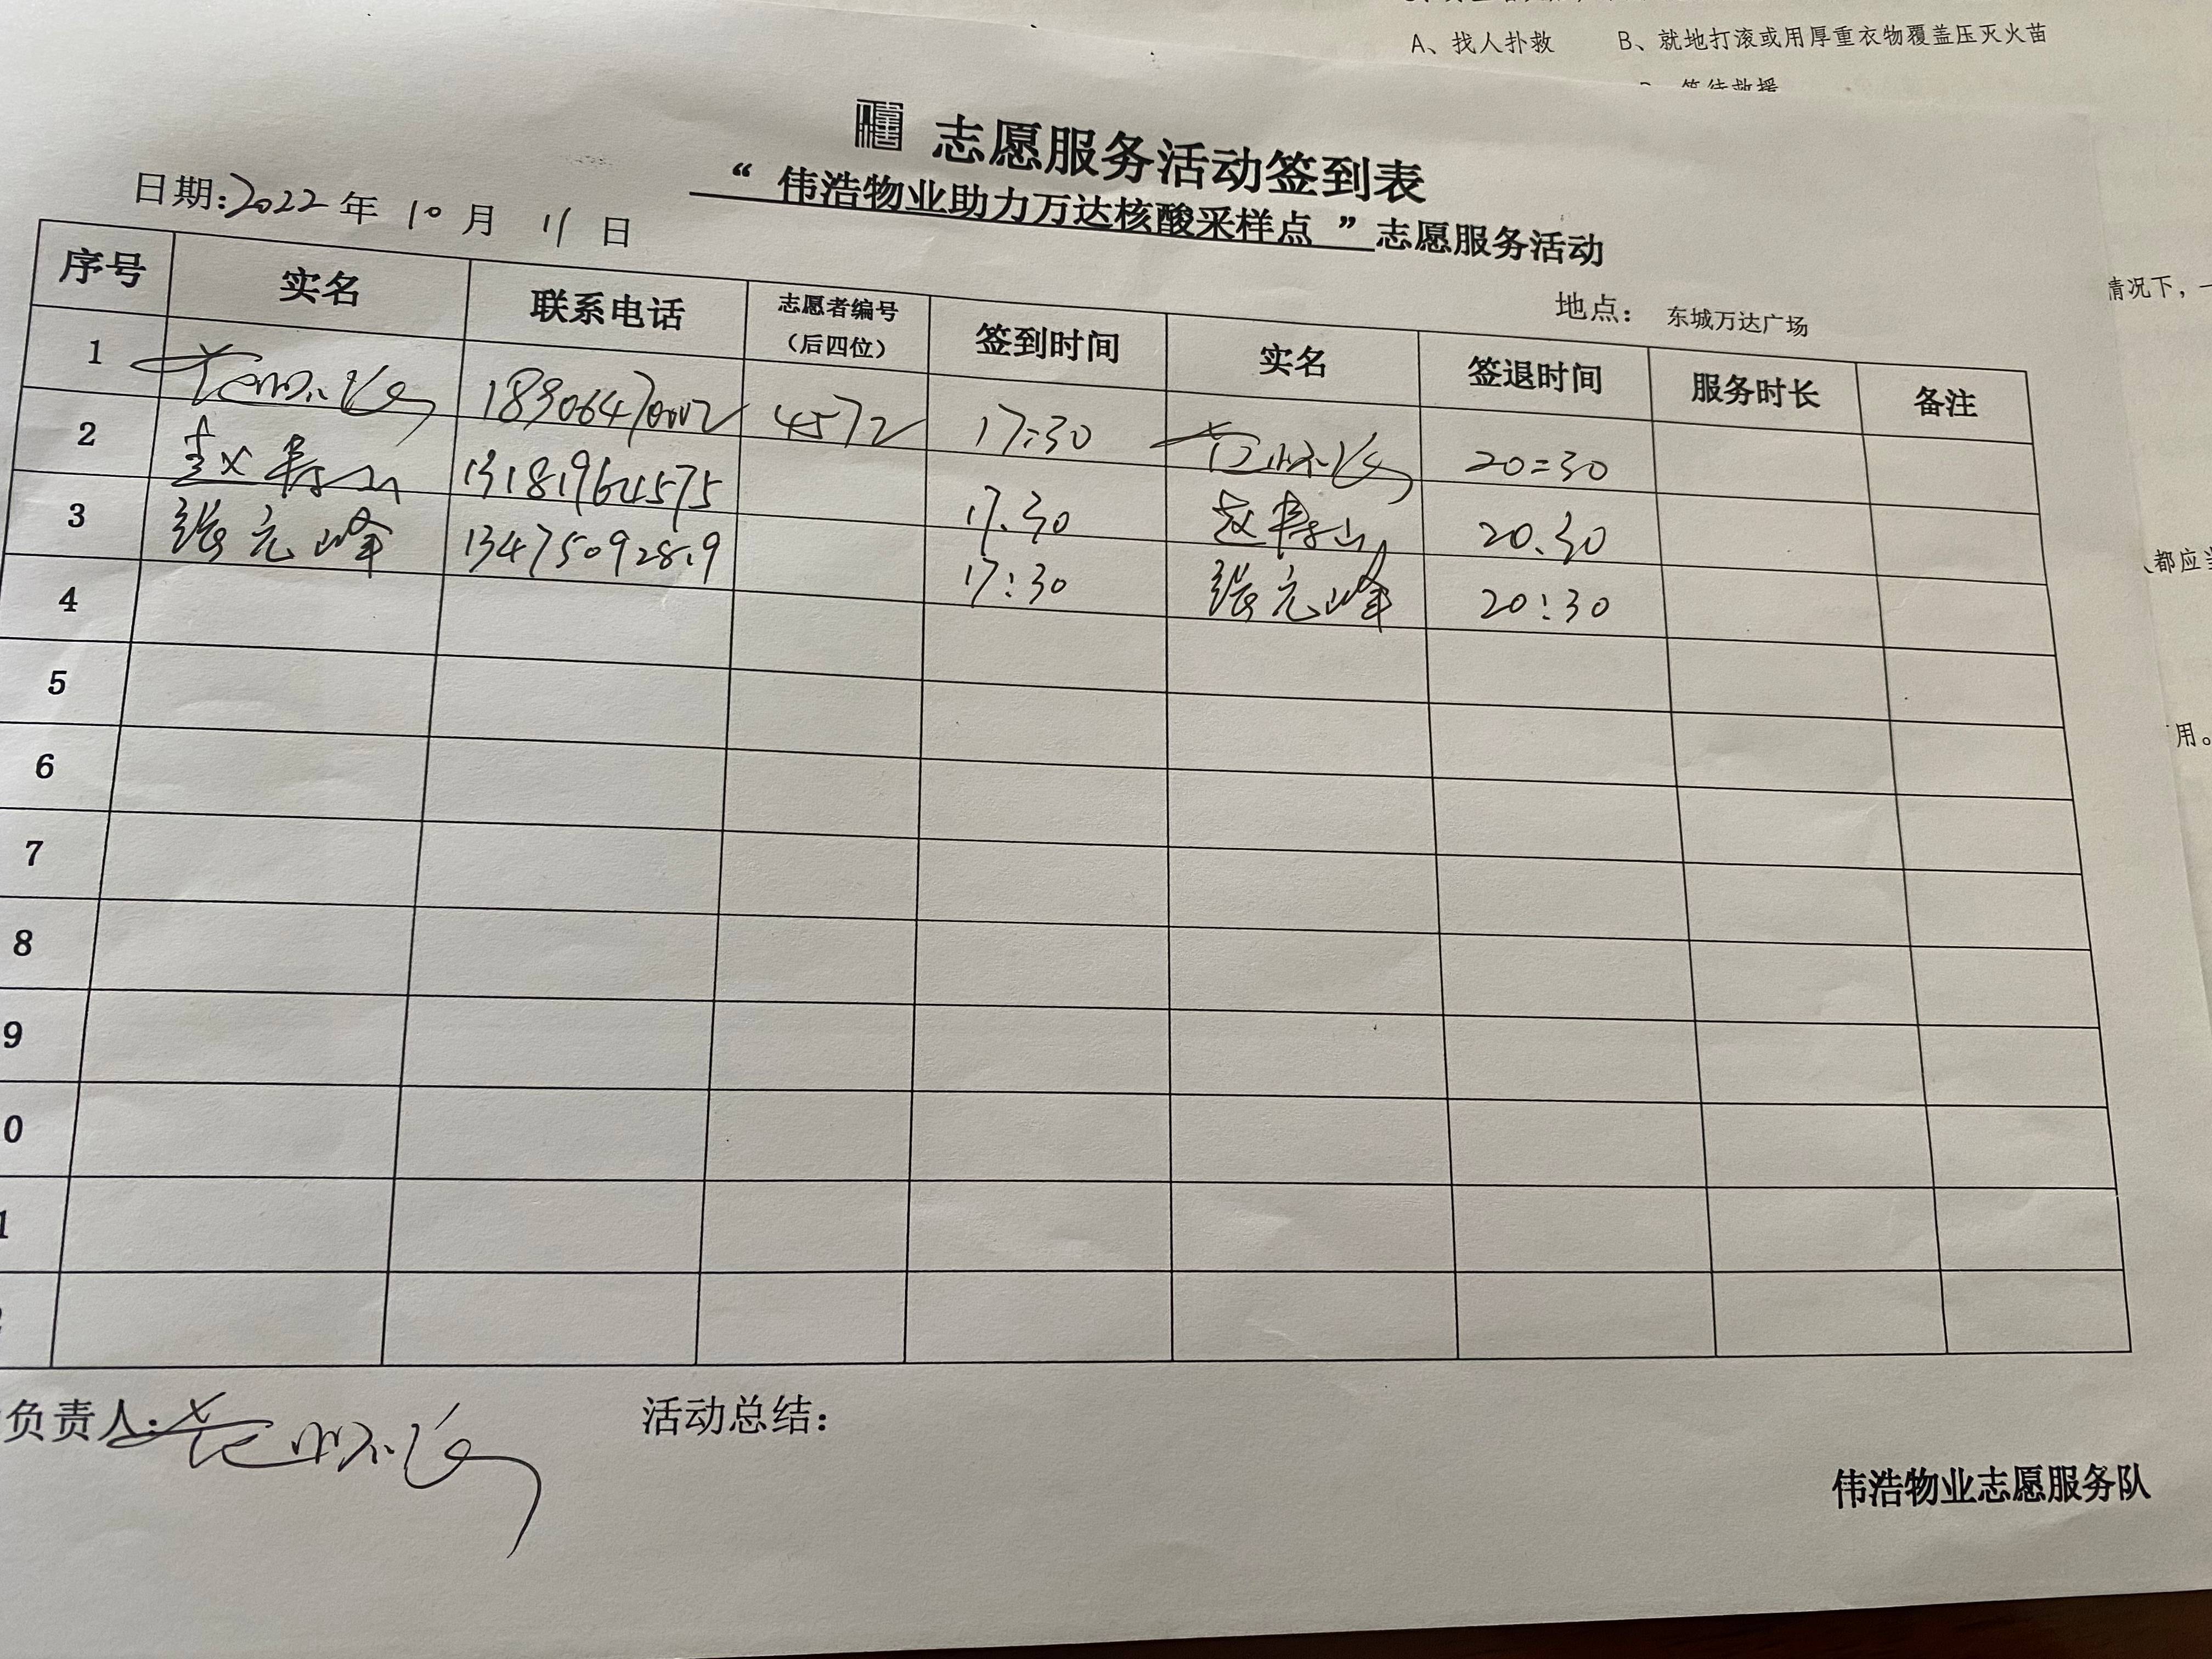 A、找人扑救 B、就地打滚或用厚重衣物覆盖压灭火苗
等待救援
志愿服务活动签到表
“ 伟浩物业助力万达核酸采样点 ”志愿服务活动
日期:2022 年 10 月 11 日
地点： 东城万达广场
序号 实名 联系电话 志愿者编号（后四位） 签到时间 实名 签退时间 服务时长 备注
1 4572 17:30 20:30
2 赵寿山 13181964575 17.30 赵寿山 20.30
3 张元峰 13475092819 17:30 张元峰 20:30
4
5
6
7
8
9
0
1
负责人: 活动总结：
伟浩物业志愿服务队
情况下，一
都应当
用。